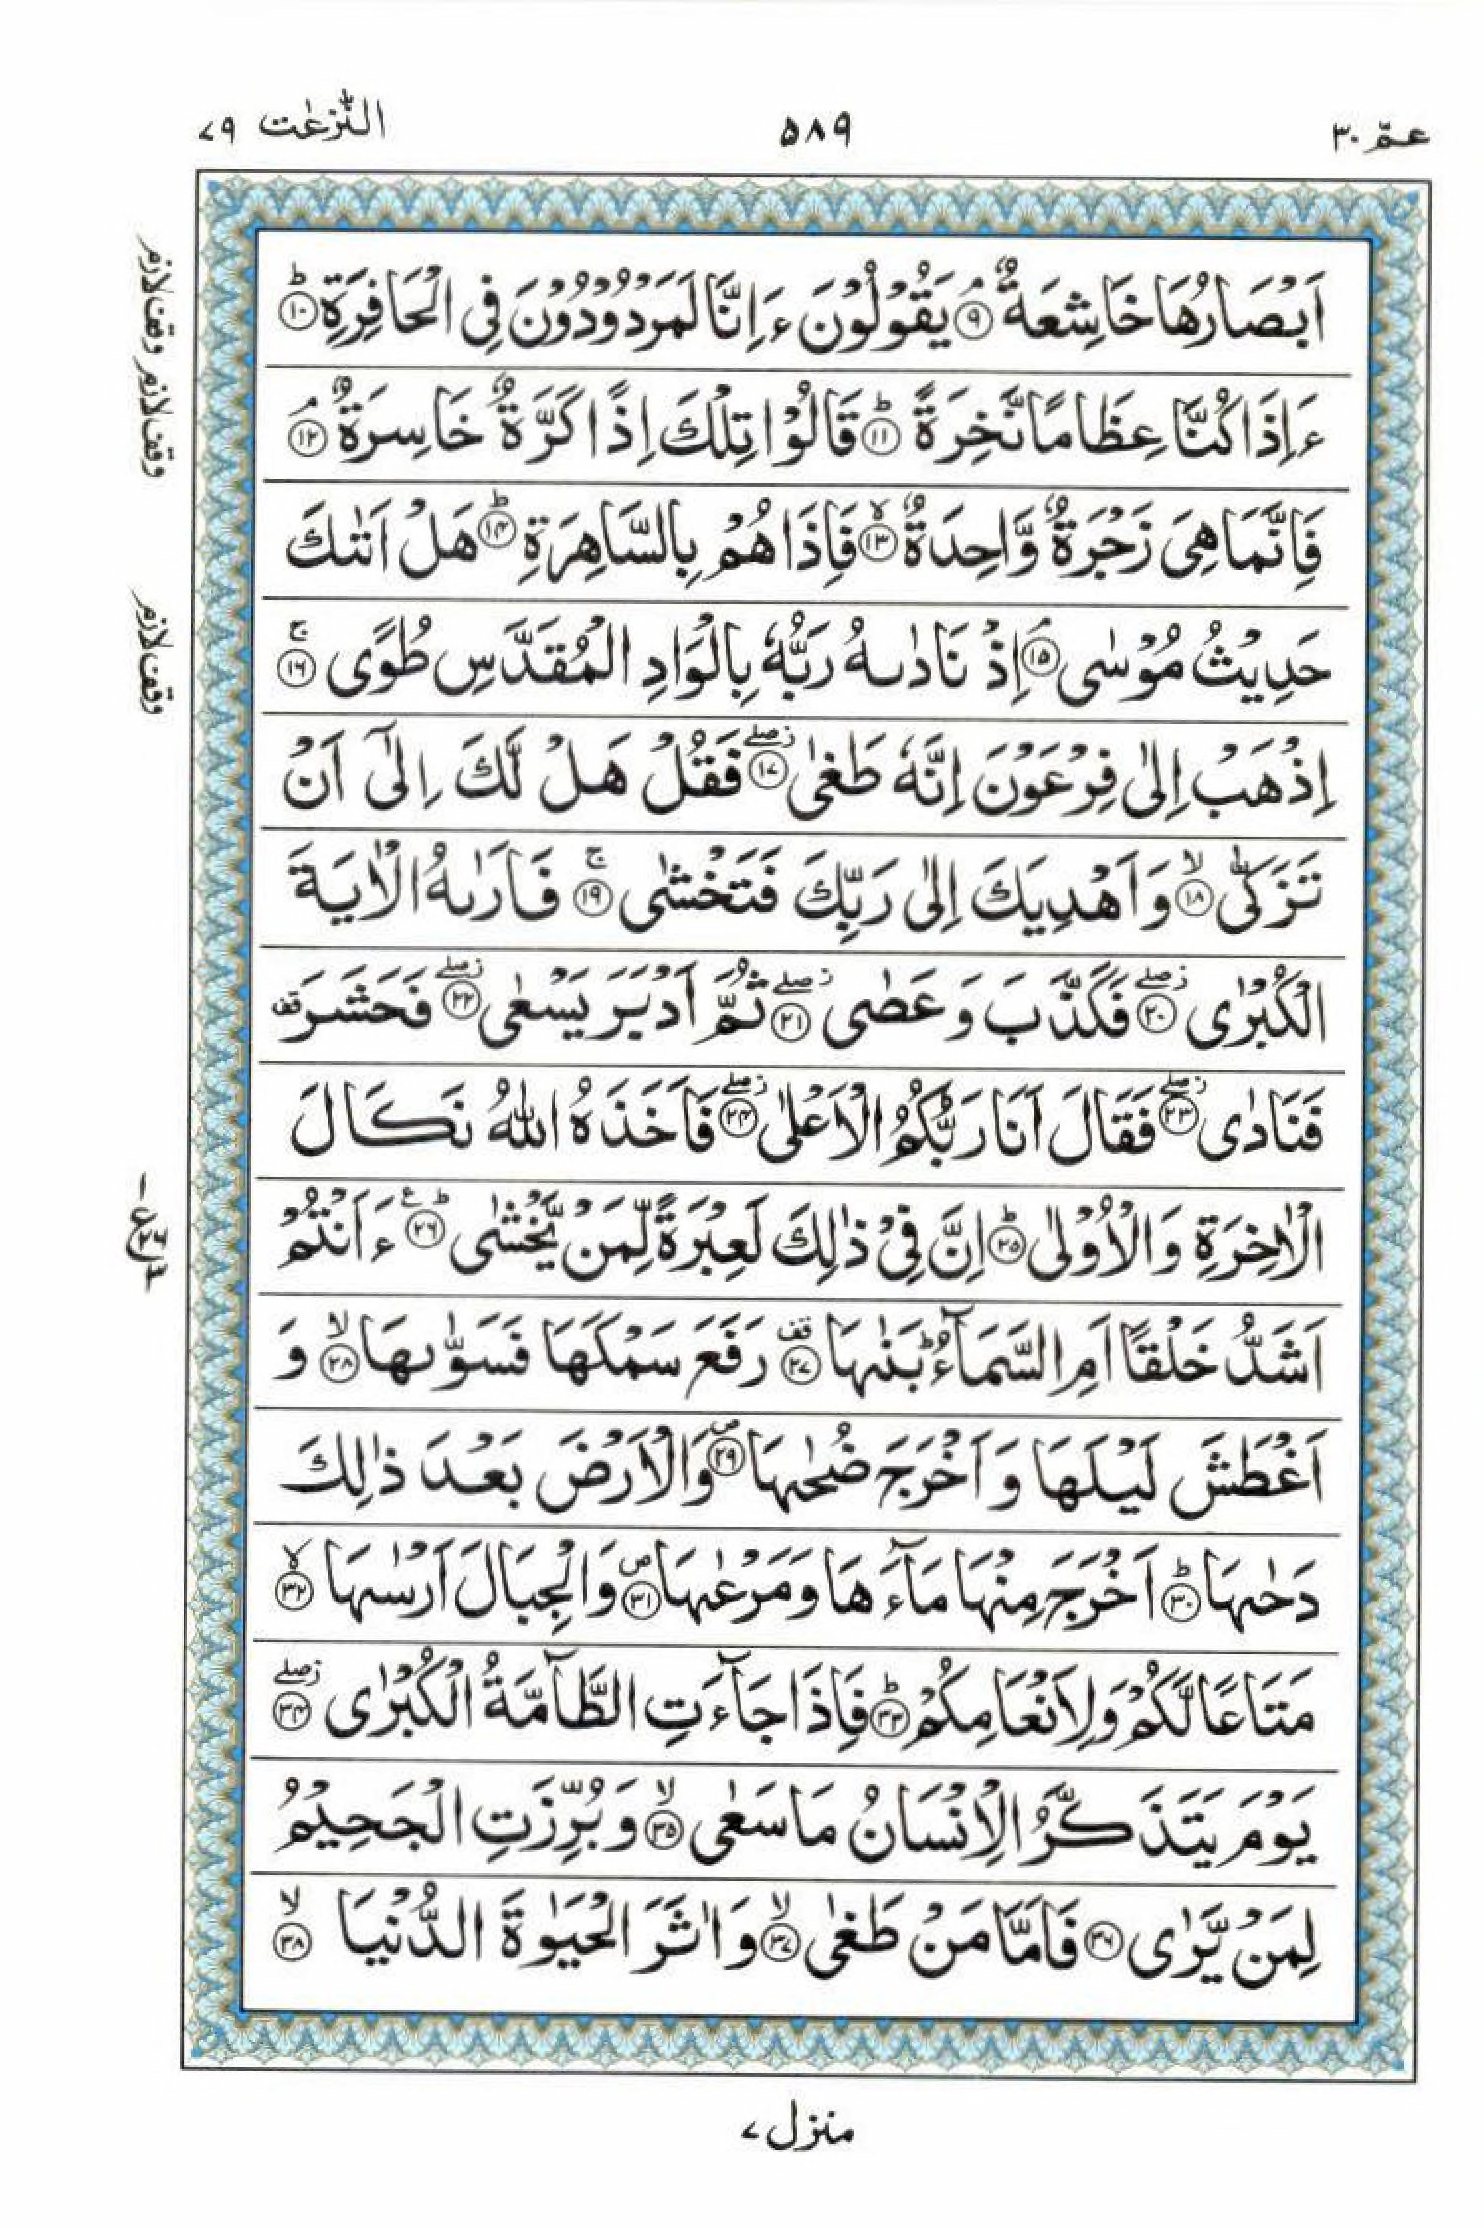 عمّ ٣٠
۵۸۹
النّٰزعٰت ٧٩
اَبْصَارُهَا خَاشِعَةٌ ۘ ﴿۹﴾ يَقُوْلُوْنَ ءَاِنَّا لَمَرْدُوْدُوْنَ فِى الْحَافِرَةِ ؕ ﴿۱۰﴾
ءَاِذَا كُنَّا عِظَامًا نَّخِرَةً ؕ ﴿۱۱﴾ قَالُوْا تِلْكَ اِذًا كَرَّةٌ خَاسِرَةٌ ۘ ﴿۱۲﴾
فَاِنَّمَا هِىَ زَجْرَةٌ وَّاحِدَةٌ ۙ ﴿۱۳﴾ فَاِذَا هُمْ بِالسَّاهِرَةِ ؕ ﴿۱۴﴾ هَلْ اَتٰٮكَ
حَدِيْثُ مُوْسٰى ۘ ﴿۱۵﴾ اِذْ نَادٰٮهُ رَبُّهٗ بِالْوَادِ الْمُقَدَّسِ طُوًى ۚ ﴿۱۶﴾
اِذْهَبْ اِلٰى فِرْعَوْنَ اِنَّهٗ طَغٰى ۖ ﴿۱۷﴾ فَقُلْ هَلْ لَّكَ اِلٰٓى اَنْ
تَزَكّٰى ۙ ﴿۱۸﴾ وَاَهْدِيَكَ اِلٰى رَبِّكَ فَتَخْشٰى ۚ ﴿۱۹﴾ فَاَرٰٮهُ الْاٰيَةَ
الْكُبْرٰى ۖ ﴿۲۰﴾ فَكَذَّبَ وَعَصٰى ۖ ﴿۲۱﴾ ثُمَّ اَدْبَرَ يَسْعٰى ۖ ﴿۲۲﴾ فَحَشَرَ قف
فَنَادٰى ۖ ﴿۲۳﴾ فَقَالَ اَنَا رَبُّكُمُ الْاَعْلٰى ۖ ﴿۲۴﴾ فَاَخَذَهُ اللّٰهُ نَكَالَ
الْاٰخِرَةِ وَالْاُوْلٰى ؕ ﴿۲۵﴾ اِنَّ فِىْ ذٰلِكَ لَعِبْرَةً لِّمَنْ يَّخْشٰى ؕ ع ﴿۲۶﴾ ءَاَنْتُمْ
اَشَدُّ خَلْقًا اَمِ السَّمَآءُ ؕ بَنٰٮهَا قف ﴿۲۷﴾ رَفَعَ سَمْكَهَا فَسَوّٰٮهَا ۙ ﴿۲۸﴾ وَ
اَغْطَشَ لَيْلَهَا وَاَخْرَجَ ضُحٰٮهَا ص ﴿۲۹﴾ وَالْاَرْضَ بَعْدَ ذٰلِكَ
دَحٰٮهَا ؕ ﴿۳۰﴾ اَخْرَجَ مِنْهَا مَآءَهَا وَمَرْعٰٮهَا ص ﴿۳۱﴾ وَالْجِبَالَ اَرْسٰٮهَا ۙ ﴿۳۲﴾
مَتَاعًا لَّكُمْ وَلِاَنْعَامِكُمْ ؕ ﴿۳۳﴾ فَاِذَا جَآءَتِ الطَّآمَّةُ الْكُبْرٰى ۖ ﴿۳۴﴾
يَوْمَ يَتَذَكَّرُ الْاِنْسَانُ مَا سَعٰى ۙ ﴿۳۵﴾ وَبُرِّزَتِ الْجَحِيْمُ
لِمَنْ يَّرٰى ﴿۳۶﴾ فَاَمَّا مَنْ طَغٰى ۙ ﴿۳۷﴾ وَاٰثَرَ الْحَيٰوةَ الدُّنْيَا ۙ ﴿۳۸﴾
وقف لازم وقف لازم
وقف لازم
منزل ٧